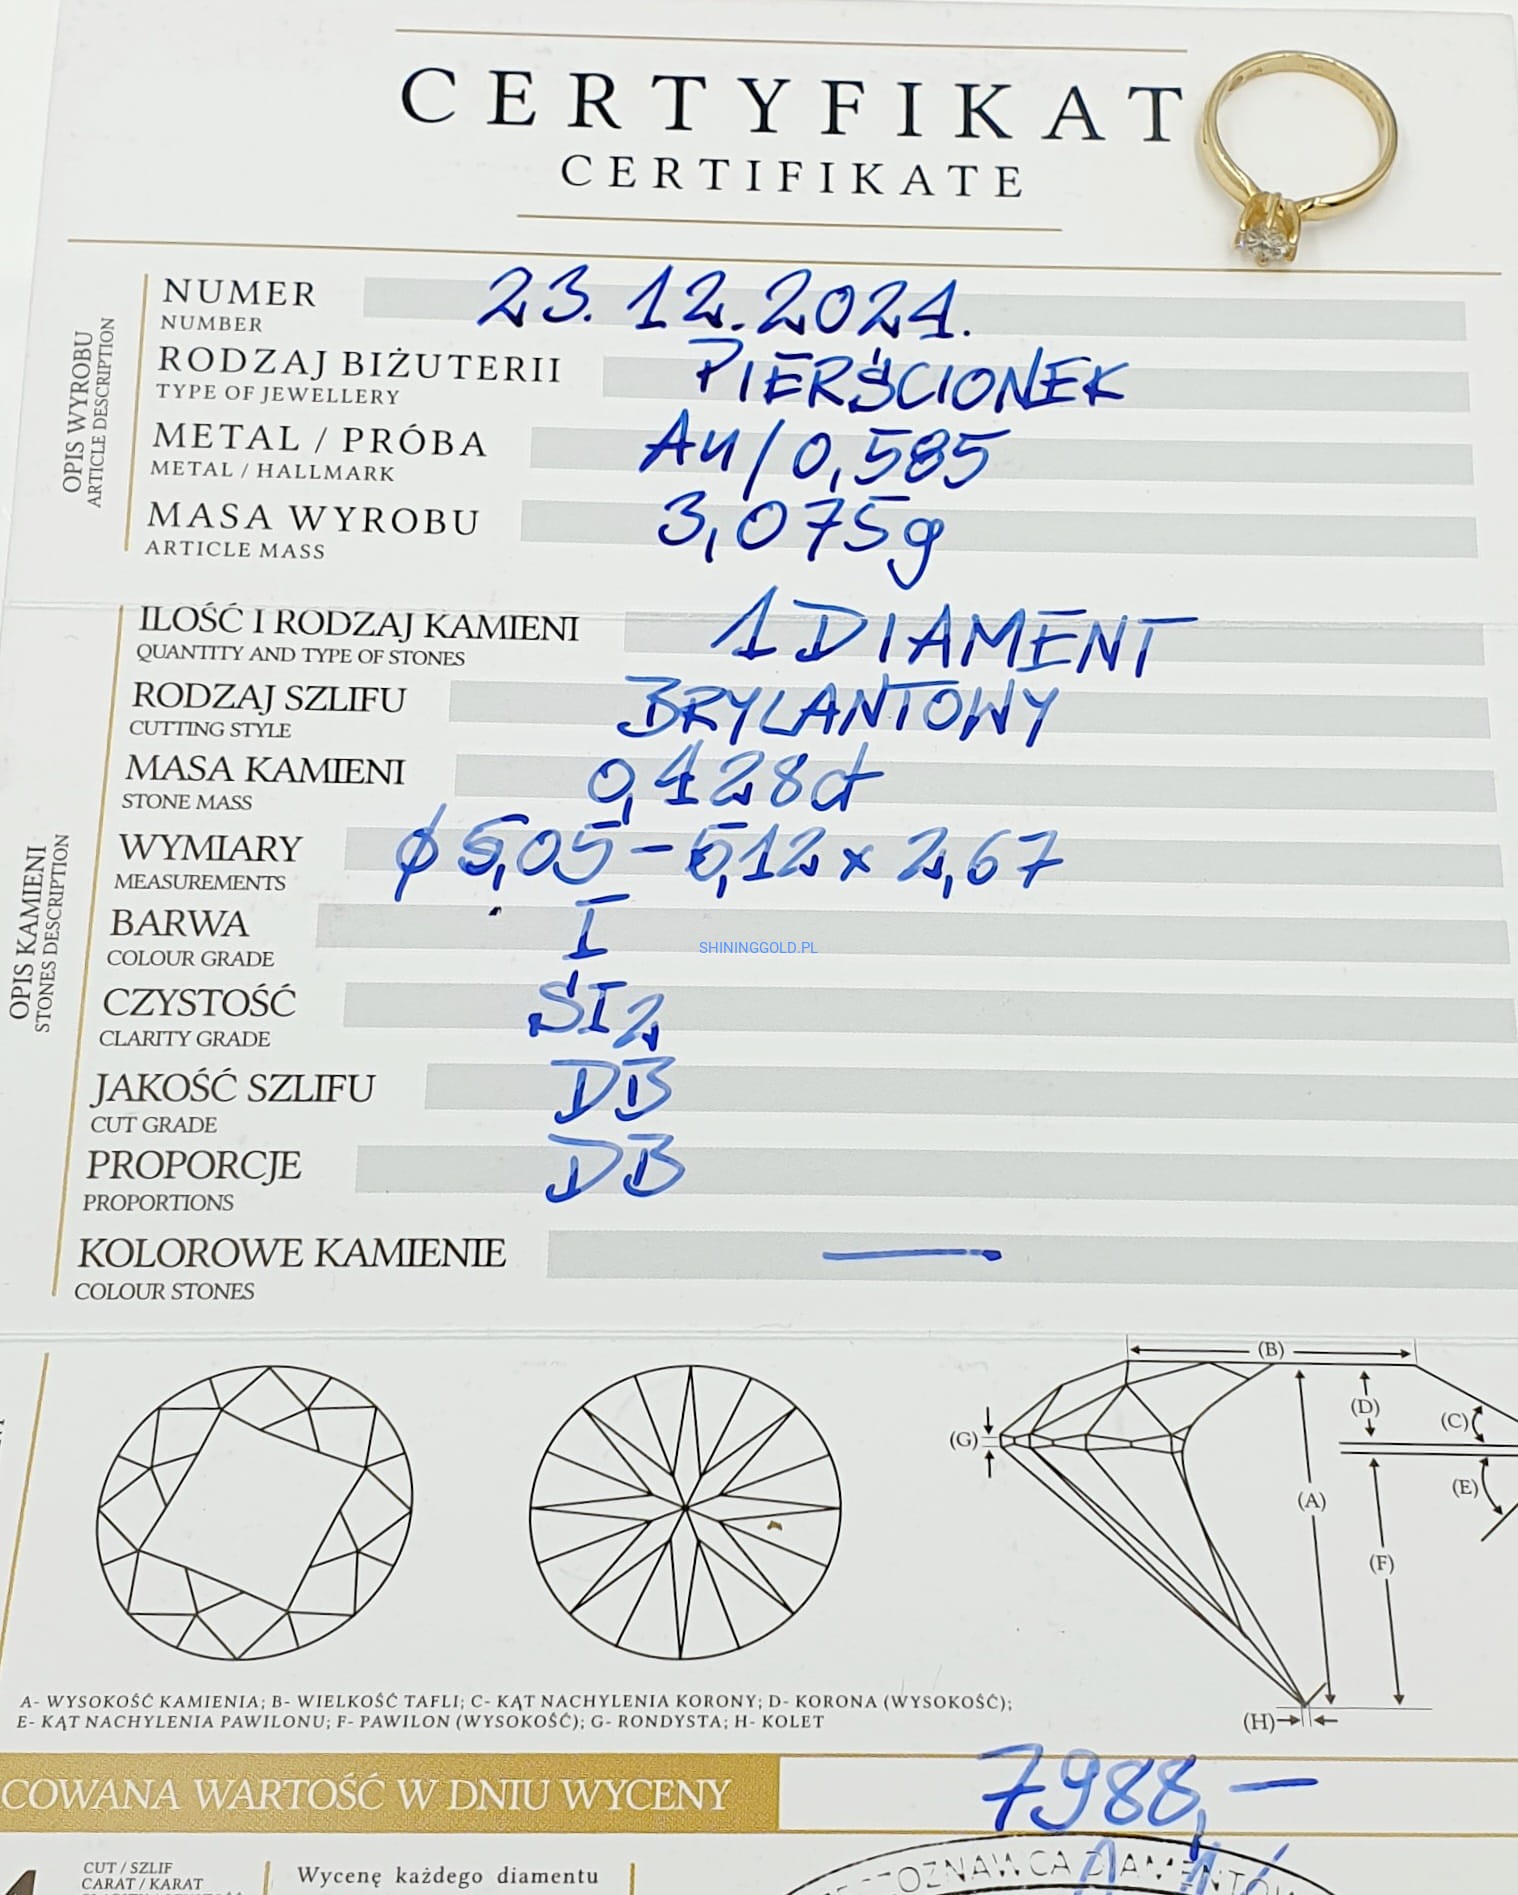 CERTYFIKAT
CERTIFIKATE
OPIS WYROBU
ARTICLE DESCRIPTION
NUMER 23.12.2024.
NUMBER
RODZAJ BIŻUTERII PIERŚCIONEK
TYPE OF JEWELLERY
METAL / PRÓBA Au/0,585
METAL / HALLMARK
MASA WYROBU 3,075g
ARTICLE MASS
OPIS KAMIENI
STONES DESCRIPTION
ILOŚĆ I RODZAJ KAMIENI 1 DIAMENT
QUANTITY AND TYPE OF STONES
RODZAJ SZLIFU BRYLANTOWY
CUTTING STYLE
MASA KAMIENI 0,428ct
STONE MASS
WYMIARY ϕ 5,05 - 5,12 x 2,67
MEASUREMENTS
BARWA I
COLOUR GRADE
SHININGGOLD.PL
CZYSTOŚĆ SI2
CLARITY GRADE
JAKOŚĆ SZLIFU DB
CUT GRADE
PROPORCJE DB
PROPORTIONS
KOLOROWE KAMIENIE —
COLOUR STONES
(B)
(D)
(C)
(G)
(E)
(A)
(F)
(H)
A- WYSOKOŚĆ KAMIENIA; B- WIELKOŚĆ TAFLI; C- KĄT NACHYLENIA KORONY; D- KORONA (WYSOKOŚĆ);
E- KĄT NACHYLENIA PAWILONU; F- PAWILON (WYSOKOŚĆ); G- RONDYSTA; H- KOLET
COWANA WARTOŚĆ W DNIU WYCENY 7988,-
CUT / SZLIF
CARAT / KARAT
Wycenę każdego diamentu